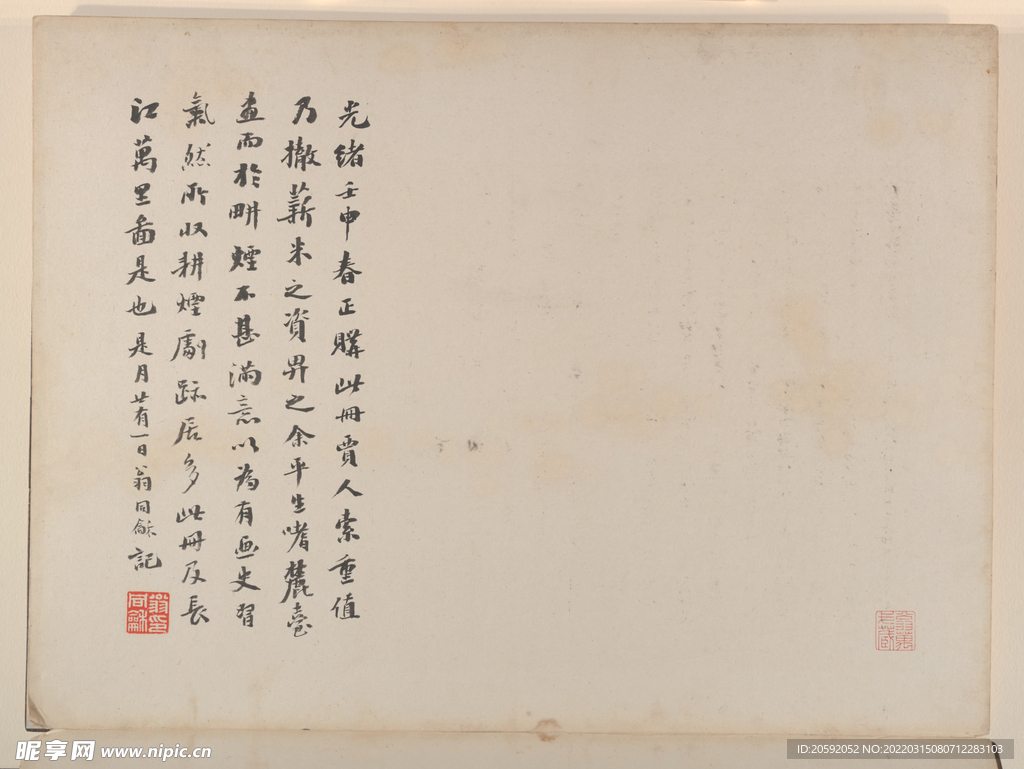 光緒壬申春正購此冊賈人索重值
乃撤薪米之資畀之余平生嗜麓臺
畫而於畊煙不甚滿意以為有画史習
氣然所収耕煙劇跡居多此冊及長
江萬里啚是也是月廿有一日翁同龢記
翁同龢印
翁萬戈藏
昵享网 www.nipic.cn
ID:20592052 NO:20220315080712283103